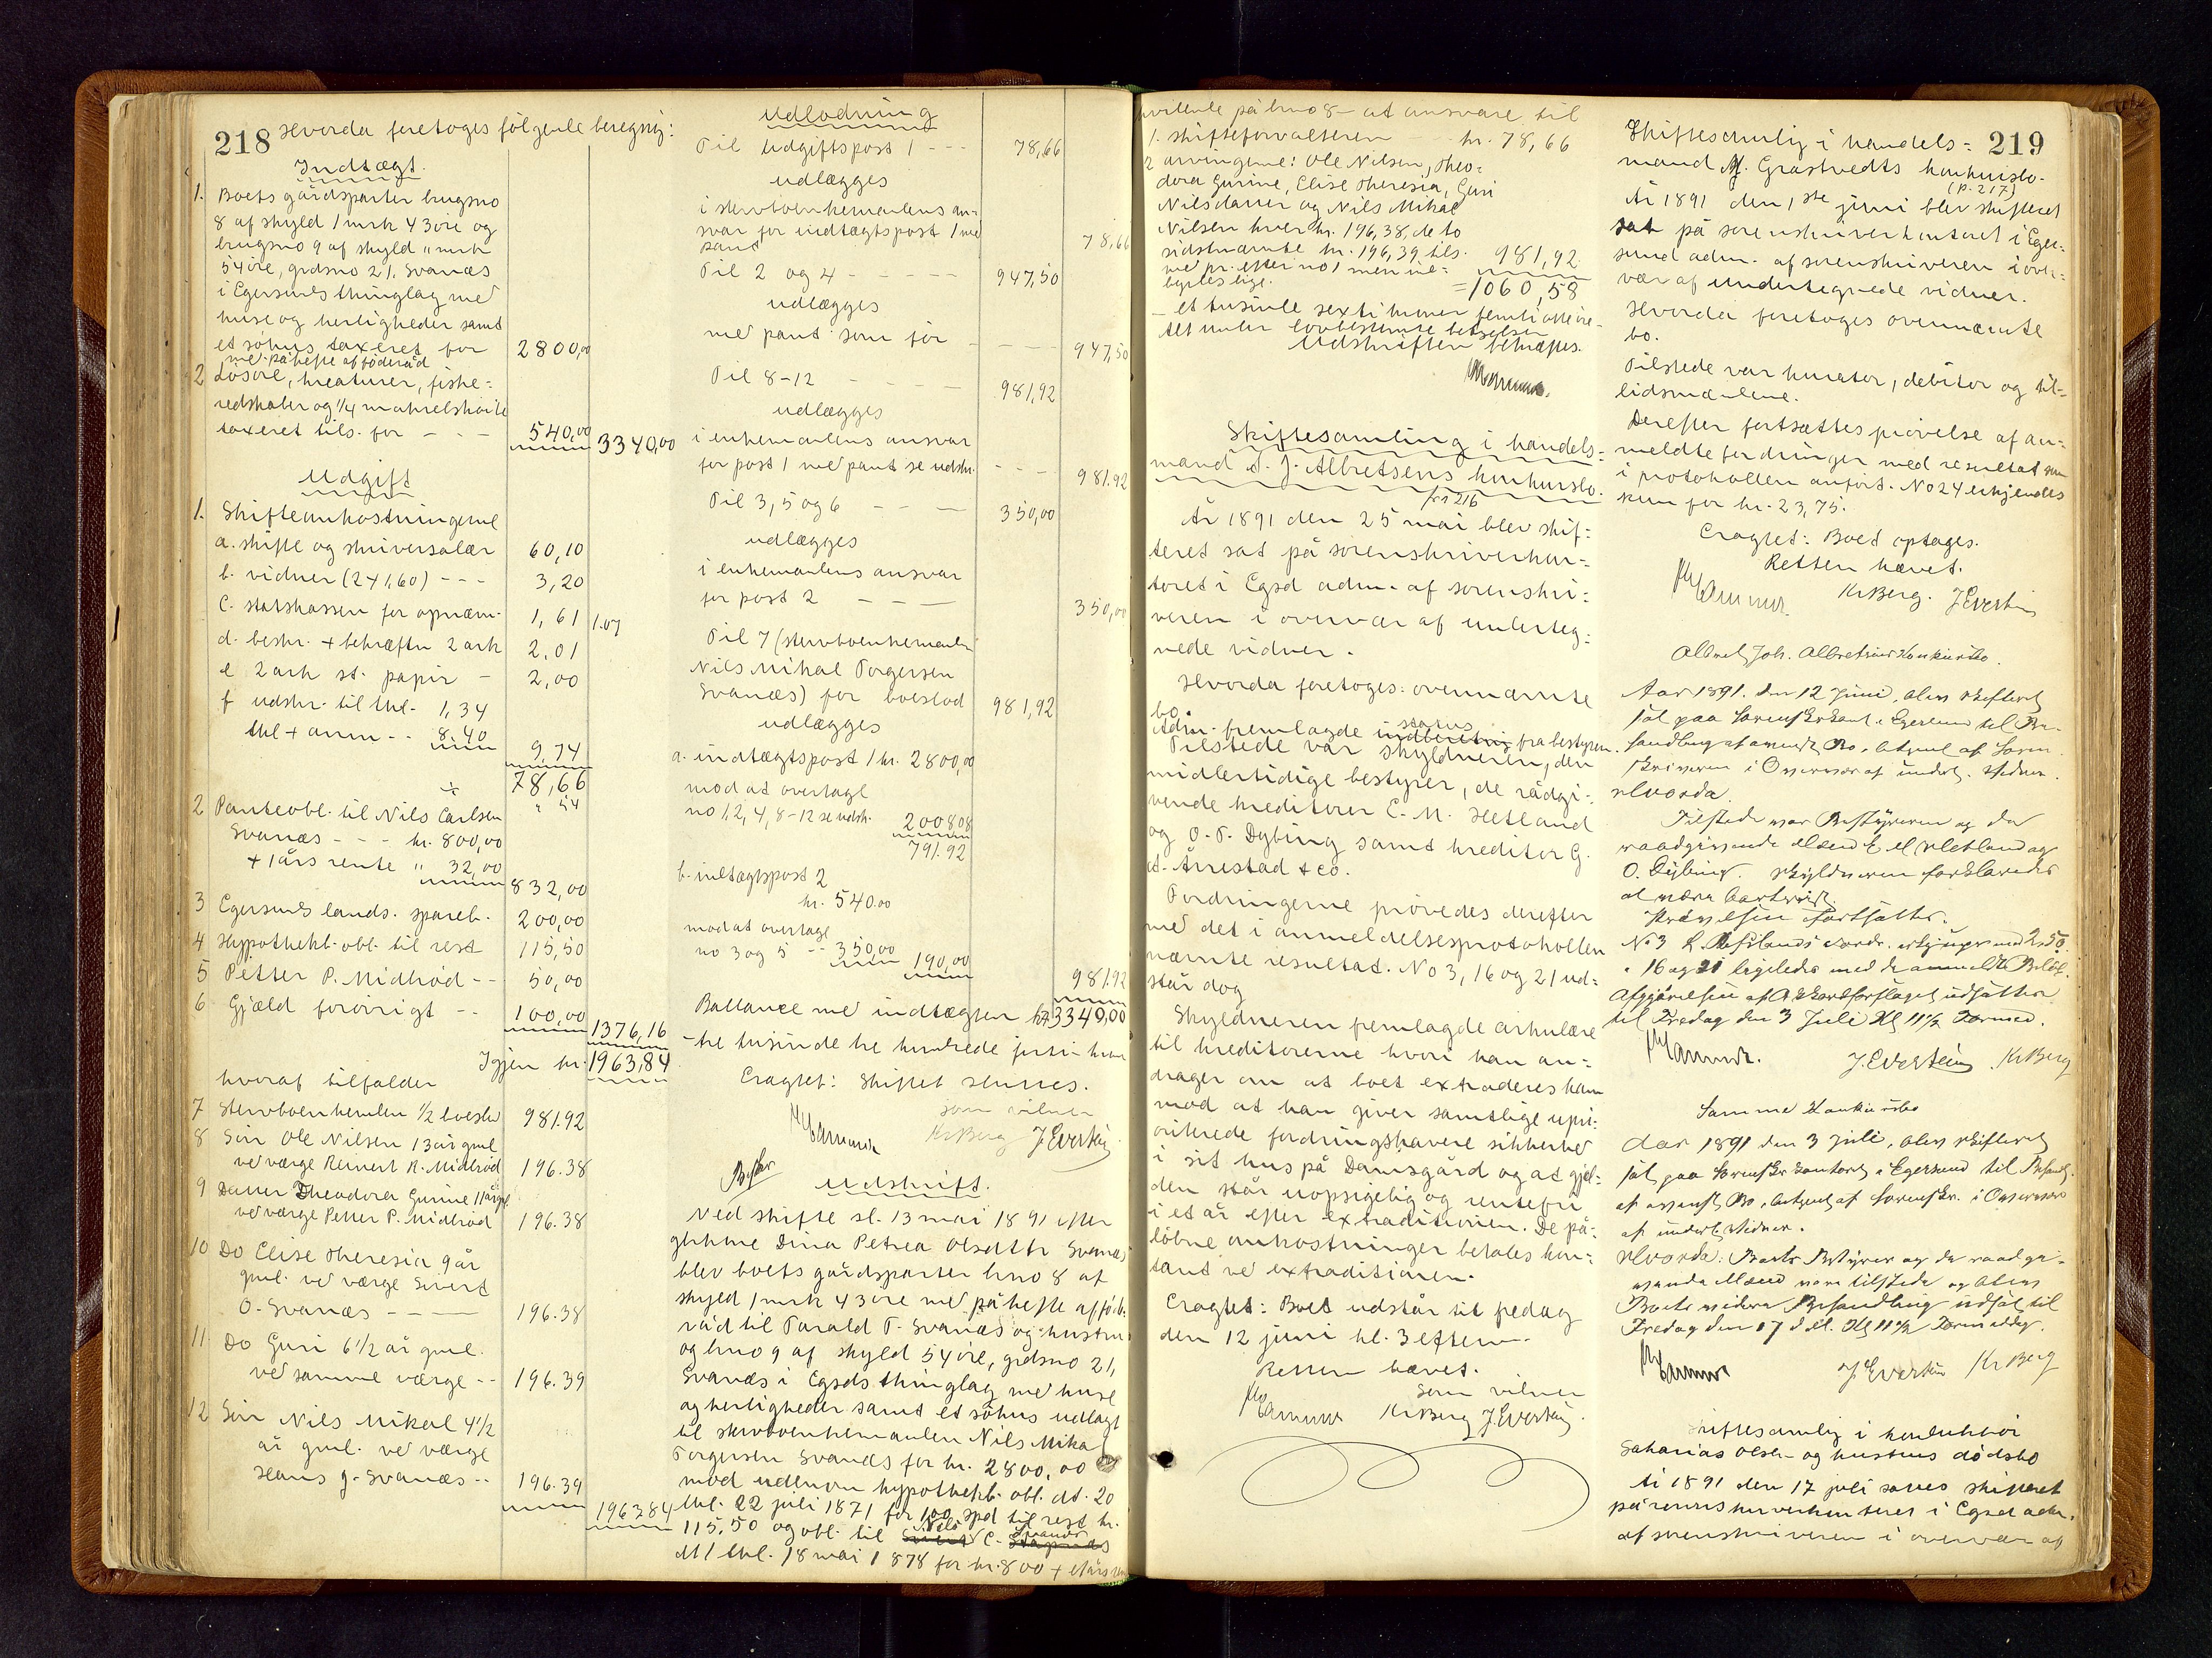 218 Hvorda foretoges følgende beregnig:
Indtægt.
1. Boets gårdsparter brugsno
8 af skyld 1 mrk 43 øre og
brugsno 9 af skyld " mrk
54 øre, grdsno 21, Svanæs
i Egersunds thinglag med
huse og herligheder samt
et søhus taxeret for 2800,00
med påhefte af føderåd
2 Løsøre, kreaturer, fiske-
redskaber og 1/4 makrelskøite
taxeret tils. for - - - 540,00 3340,00
Udgift
1. Skifteomkostningerne
a. skifte og skriversalær 60,10
b. vidner (2 4 1,60) - - - 3,20
c. statskassen for opnævn. 1,61 1.07
d. beskr. + bekræftn 2 ark 2,01
e 2 ark st. papir - 2,00
f udskr. til thl. 1,34
thl + anm - - 8.40
9,74
÷ 78,66
" 54
2 Panteobl. til Nils Carlsen
Svanæs - - - kr. 800,00
+ 1 års rente " 32,00
832,00
3 Egersunds lands. spareb. 200,00
4 Hypothekb. obl. til rest 115,50
5 Petter P. Midbrød - - 50,00
6 Gjæld forøvrigt - - 100,00
1376,16
Igjen kr. 1963,84
hvoraf tilfalder
7 Stervboenkemden 1/2 boeslod 981.92
8 Søn Ole Nilsen 13 år gml
ved værge Reinert R. Midbrød 196.38
9 Datter Theodora Gurine 11 år gl
ved værge Petter P. Midbrød 196.38
10 Do Elise Theresia 9 år
gml. ved værge Sivert
O. Svanæs - - - 196.38
11 Do Guri 6 1/2 år gml.
ved samme værge - - 196.39
12 Søn Nils Mikal 4 1/2
år gml. ved værge
Hans J. Svanæs - - 196.39
1963.84
Udlodning
Til Udgiftspost 1 - - - 78,66
udlægges
i stervboenkemandens an-
svar for indtægtspost 1 med
pant 78,66
Til 2 og 4 - - - - - 947,50
udlægges
med pant som før - - - 947,50
Til 8-12 - - - - 981,92
udlægges
i enkemandens ansvar
for post 1 med pant se udskr. - - - 981.92
Til 3, 5 og 6 - - - 350,00
udlægges
i enkemandens ansvar
for post 2 - - - 350,00
Til 7 (stervboenkemanden
Nils Mikal Torgersen
Svanæs) for boeslod 981,92
udlægges
a. indtægtspost 1 kr. 2800,00
mod at overtage
no 1, 2, 4, 8-12 se udskr. 2008.08
791.92
b. indtægtspost 2
kr. 540.00
mod at overtage
no 3 og 5 - - 350,00 190,00
981.92
Ballance med indtægten kr 3340,00
- tre tusinde tre hundrede førti kron
Eragtet: Skiftet sluttes.
som vidner
KrBerg J. Evertsen
Udskrift.
Ved skifte sl. 13 mai 1891 efter
gifte kone Dina Petrea Olsdttr Svanæs
blev boets gårdsparter brno 8 af
skyld 1 mrk 43 øre med påhefte af føde-
råd til Tarald T. Svanæs og hustru
og brno 9 af skyld 54 øre, grdsno 21,
Svanæs i Egsds thinglag med huse
og herligheder samt et søhus udlagt
til stervboenkemanden Nils Mikal
Torgersen Svanæs for kr. 2800,00
mod udløsn hypothekb. obl. dt. 20
thl. 22 juli 1871 for 100 spd til rest kr.
115,50 og obl. til Nils C. Svanæs
dt 1 thl. 18 mai 1878 for kr. 800 + etårs rente
hvilende på brno 8 - at ansvare til
1. skifteforvalteren - - - kr. 78,66
2 arvingerne: Ole Nilsen, Theo-
dora Gurine, Elise Theresia, Guri
Nilsdatter og Nils Mikal
Nilsen hver kr. 196,38, de to
sidstnævnte kr. 196,39 tils. 981,92
med pr. efter no 1 men ind-
byrdes lige. = 1060,58
- et tusinde sexti kroner femti otte øre -
alt under lovbestemte betingelser
Udskriften bekræftes.
Skiftesamling i handels-
mand A. J. Albretsens konkursbo.
fra 216
År 1891 den 25 mai blev skif-
teret sat på sorenskriverkon-
toret i Egsd adm. af sorenskri-
veren i overvær af underteg-
nede vidner.
Hvorda foretoges: ovennævnte
bo.
Adm. fremlagde status fra bestyren.
Tilstede var skyldneren, den
midlertidige bestyrer, de rådgi-
vende kreditorer E. M. Hetland
og O. T. Dybing samt kreditor G.
A. Årrestad & co.
Fordringerne prøvedes derefter
med det i anmeldelsesprotokollen
nævnte resultat. No 3, 16 og 21 ud-
står dog
Skyldneren fremlagde cirkulære
til kreditorerne hvori han an-
drager om at boet extraderes ham
mod at han giver samtlige upri-
oriterede fordringshavere sikkerhed
i sit hus på Damsgård og at gjæl-
den står uopsigelig og rentefri
i et år efter extraditionen. De på-
løbne omkostninger betales kon-
tant ved extraditionen.
Eragtet: Boet udstår til fredag
den 12 juni kl. 3 efterm.
Retten hævet.
Som vidner
KrBerg J. Evertsen
219
Skiftesamlig i handels-
mand M. Grastvedts konkursbo.
(p. 217)
År 1891 den 1ste juni blev skifteret
sat på sorenskriverkontoret i Eger-
sund adm. af sorenskriveren i over-
vær af undertegnede vidner.
Hvorda foretoges ovennævnte
bo.
Tilstede var kurator, debitor og til-
lidsmændene.
Derefter fortsættes prøvelse af an-
meldte fordringer med resultat som
i protokollen anført. No 24 erkjendes
kun for kr. 23,75.
Eragtet: Boet optages.
Retten hævet.
KrBerg. J Evertsen
Albret Joh. Albretsens Konkursbo.
Aar 1891. den 12 Juni, blev skifteret
sat paa Sorenskrkont. i Egersund til Be-
handling af anmeldt Bo, betjent af Soren-
skriveren i Overvær af undert. Vidner.
Hvorda.
Tilstede var Bestyreren og de
raadgivende Mænd E M Hetland og
O. Dybing. Skyldneren forklaredes
at være bortreist.
Prøvelsen fortsattes.
No 3 erkjendes med 2,50.
" 16 og 21 ligeledes med de anmeldte Beløb.
Afgjørelsen af Akkordforslaget udsættes
til Fredag den 3 Juli Kl 11 1/2 Formd.
J. Evertsen KrBerg
Samme Konkursbo
Aar 1891 den 3 Juli, blev skifteret
sat paa Sorenskrkontoret i Egersund til Behandl.
af Bo, betjent af Sorenskr. i Overvær
af undert. Vidner.
Hvorda: Boets Bestyrer og de raadgi-
vende Mænd var tilstede og blev
Boets videre Behandling udsat til
Fredag den 17 d. M. Kl 11 1/2 Formiddag.
J Evertsen KrBerg
Skiftesamlig i
Sakarias Olsen og hustrus dødsbo
År 1891 den 17 juli sattes skifteret
på sorenskriverkontoret i Egsd adm.
af sorenskriveren i overvær af